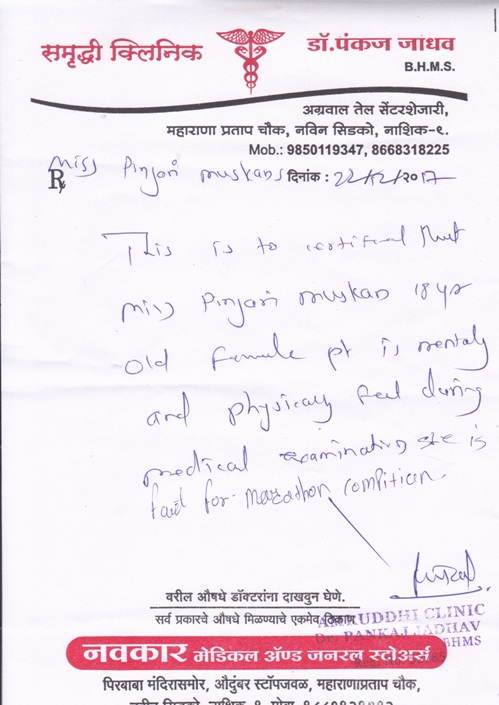 समृद्धी क्लिनिक
डॉ. पंकज जाधव
B.H.M.S.
अग्रवाल तेल सेंटरशेजारी,
महाराणा प्रताप चौक, नविन सिडको, नाशिक-९.
Mob.: 9850119347, 8668318225
Miss Pinjari Muskan
Rx दिनांक : 22/12/२०17
This is to certifical that
Miss Pinjari Muskan 18 yr
old Female pt is mentaly
and physically feel during
medical examination she is
for Marathon compitian.
वरील औषधे डॉक्टरांना दाखवुन घेणे.
सर्व प्रकारचे औषधे मिळण्याचे एकमेव ठिकाण
SAMRUDDHI CLINIC
Dr. PANKAJ JADHAV
BHMS
नवकार मेडिकल अॅण्ड जनरल स्टोअर्स
पिरबाबा मंदिरासमोर, औदुंबर स्टॉपजवळ, महाराणाप्रताप चौक,